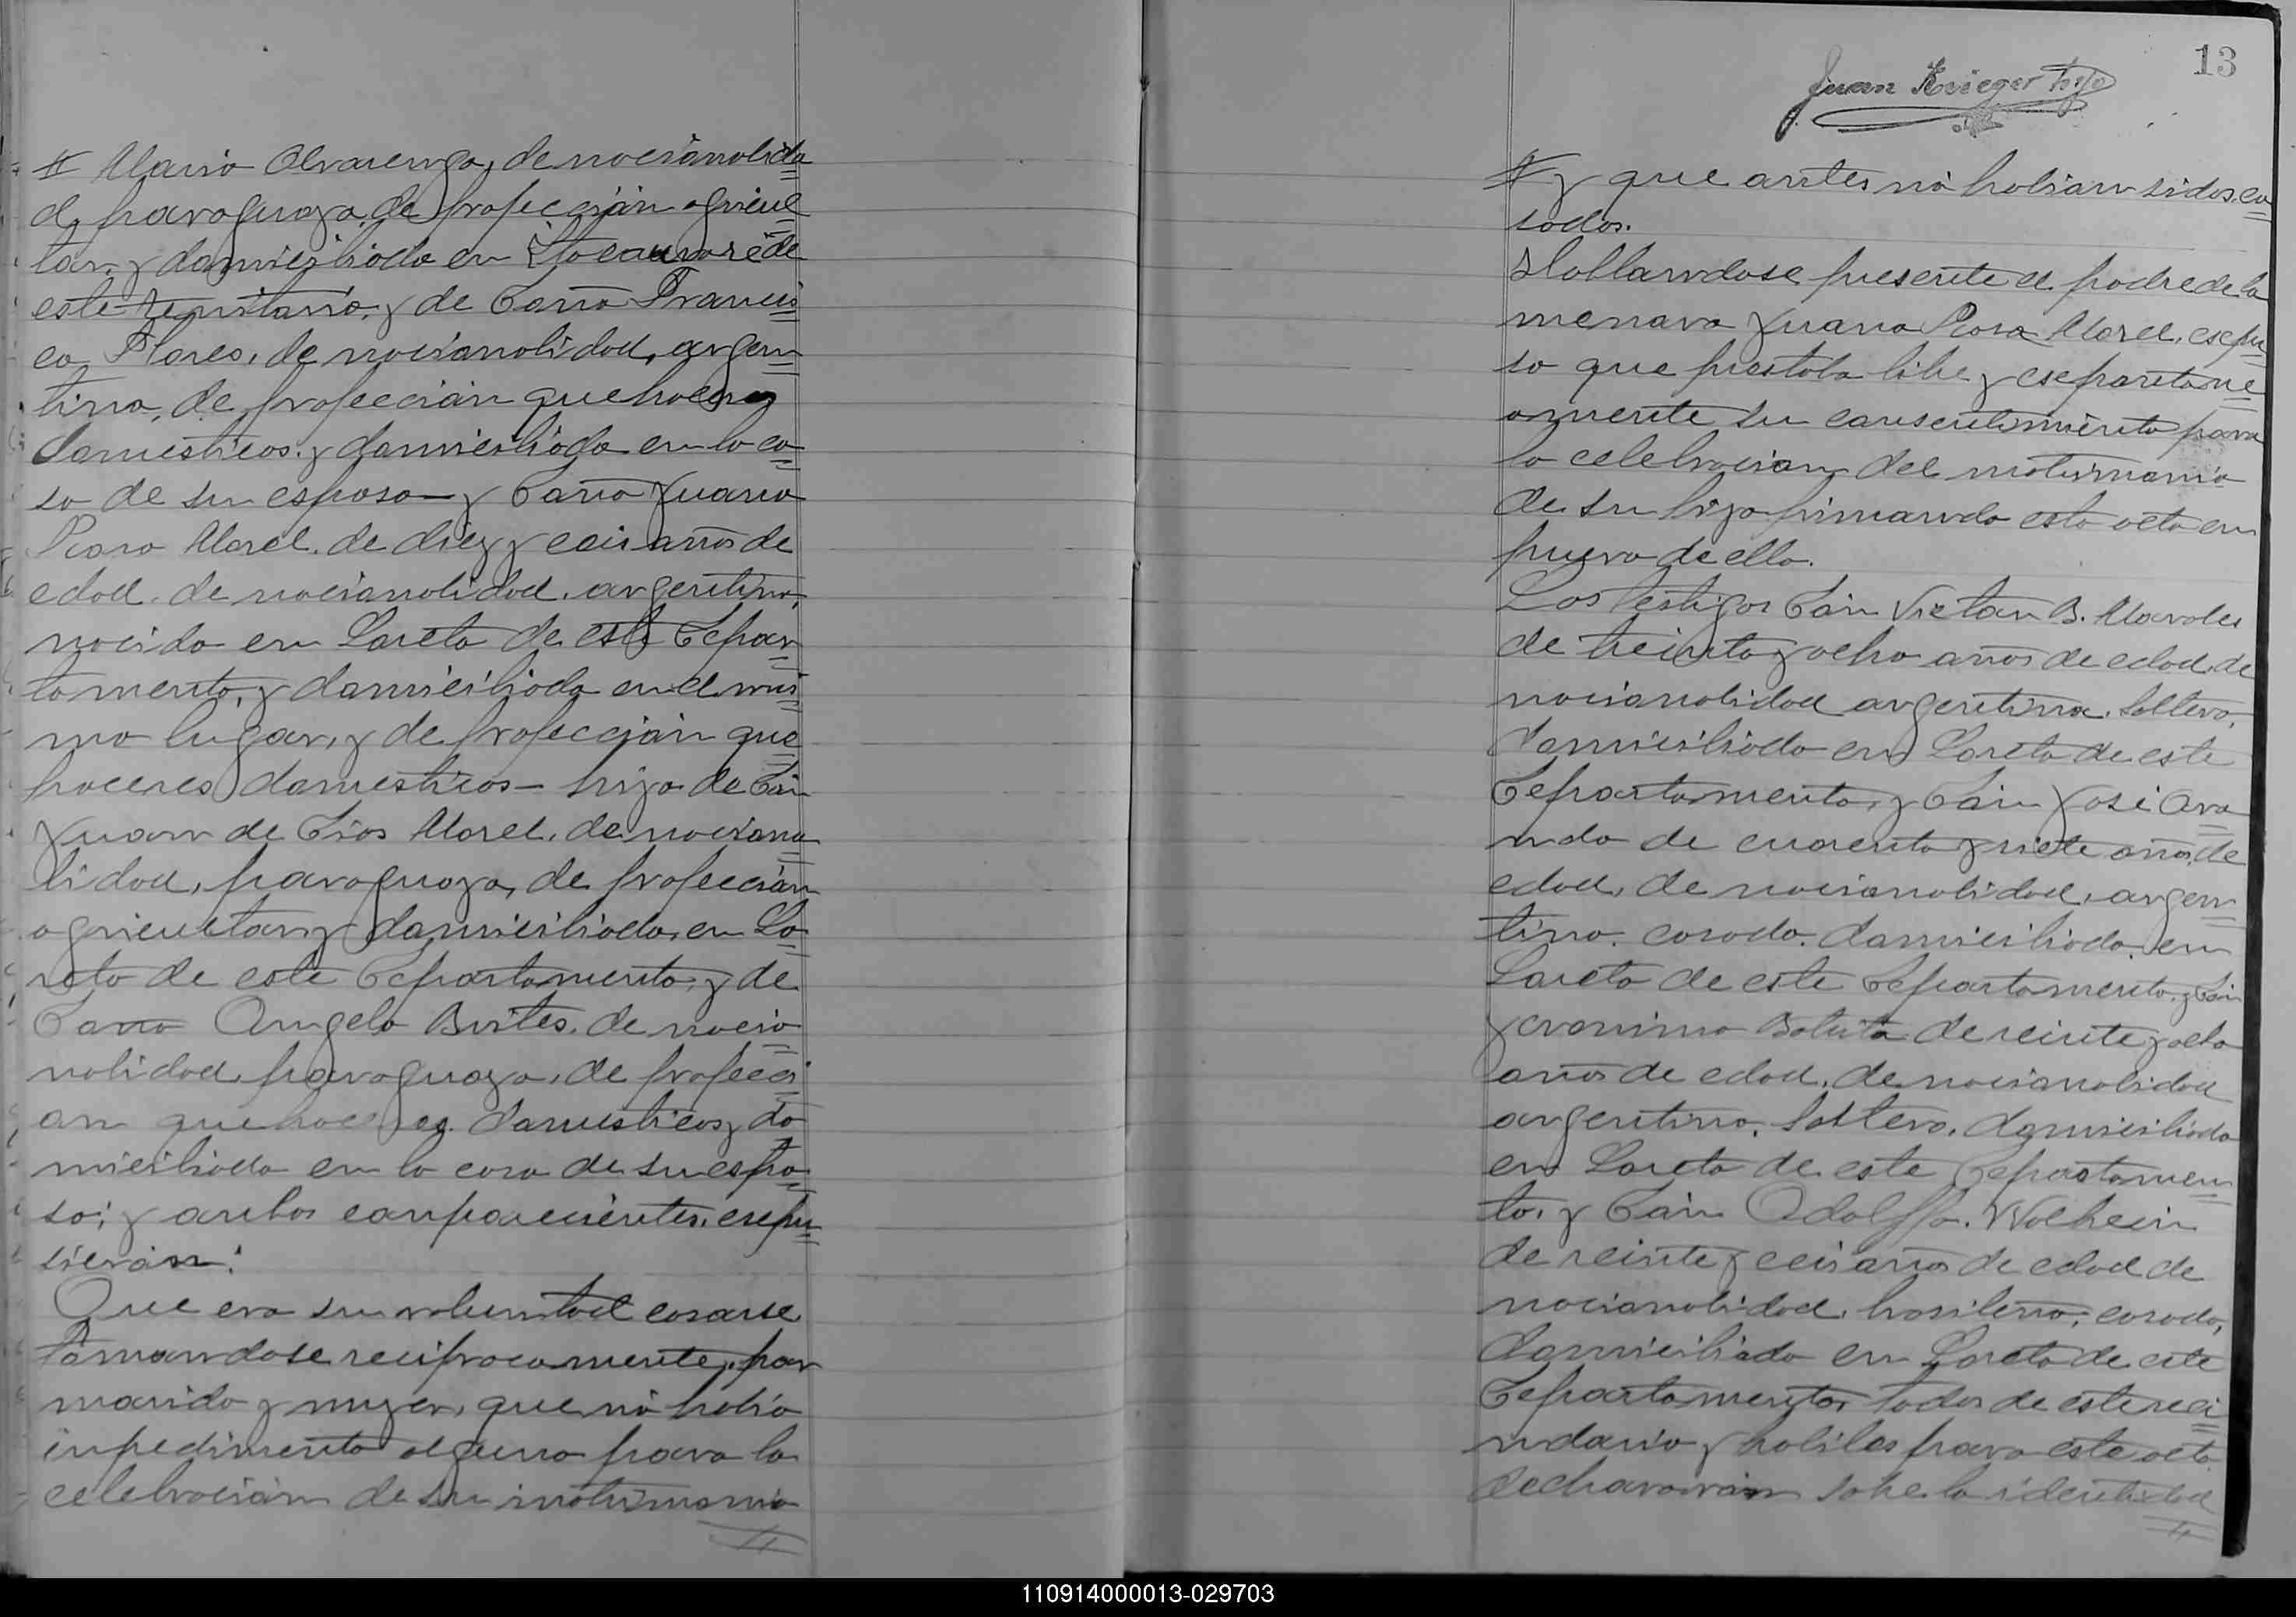 # Mario Alvarenga, de nacionalida
d, paraguaya, de profeccion agricul
tor, y domiciliado en Itacuruaré de
este territorio, y de Doña Francis
ca Flores, de nacionalidad, argen
tina, de profeccion quehaceres
domesticos, y domiciliada en la ca
sa de su esposo — y Doña Juana
Rosa Morel, de diez y ceis años de
edad, de nacionalidad, argentina,
nacida en Loreto de este Depar
tamento, y domiciliada en el mis
mo lugar, y de profeccion que
haceres domesticos — hija de Don
Juan de Dios Morel, de naciona
lidad, paraguaya, de profeccion
agricultor y domiciliado, en Lo
reto de este Departamento, y de
Doña Angela Brites, de nacio
nalidad, paraguaya, de profecci
on quehaceres domesticos y do
miciliada en la casa de su espo
so; y ambos comparecientes, expu
sieron:
Que era su voluntad casarse
tomandose reciprocamente, por
marido y mujer, que no habia
inpedimento alguno para la
celebracion de su matrimonio
#
13
Juan Krieger hijo
# y que antes no habian sidos ca
sados.
Hallandose presente el padre de la
menora Juana Rosa Morel, expu
so que prestaba libre y espontane
amente su consentimiento para
la celebracion del matrimonio
de su hija firmando esta acta en
prueva de ello.
Los testigos Don Victor B. Morales
de treinta y ocho años de edad, de
nacionalidad argentina, soltero,
domiciliado en Loreto de este
Departamento, y Don José Ara
nda de cuarenta y siete años, de
edad, de nacionalidad, argen
tina, casado, domiciliado, en
Loreto de este Departamento, y Don
Jeronimo Batista de veinte y ocho
años de edad, de nacionalidad
argentina, soltero, domiciliado
en Loreto de este Departamen
to, y Don Adolffo
de veinte y ceis años de edad de
nacionalidad, brasilera, casado,
domiciliado en Loreto de este
Departamento, todos de este veci
ndario y habiles para este acto
declararon sobre la identidad
#
110914000013-029703